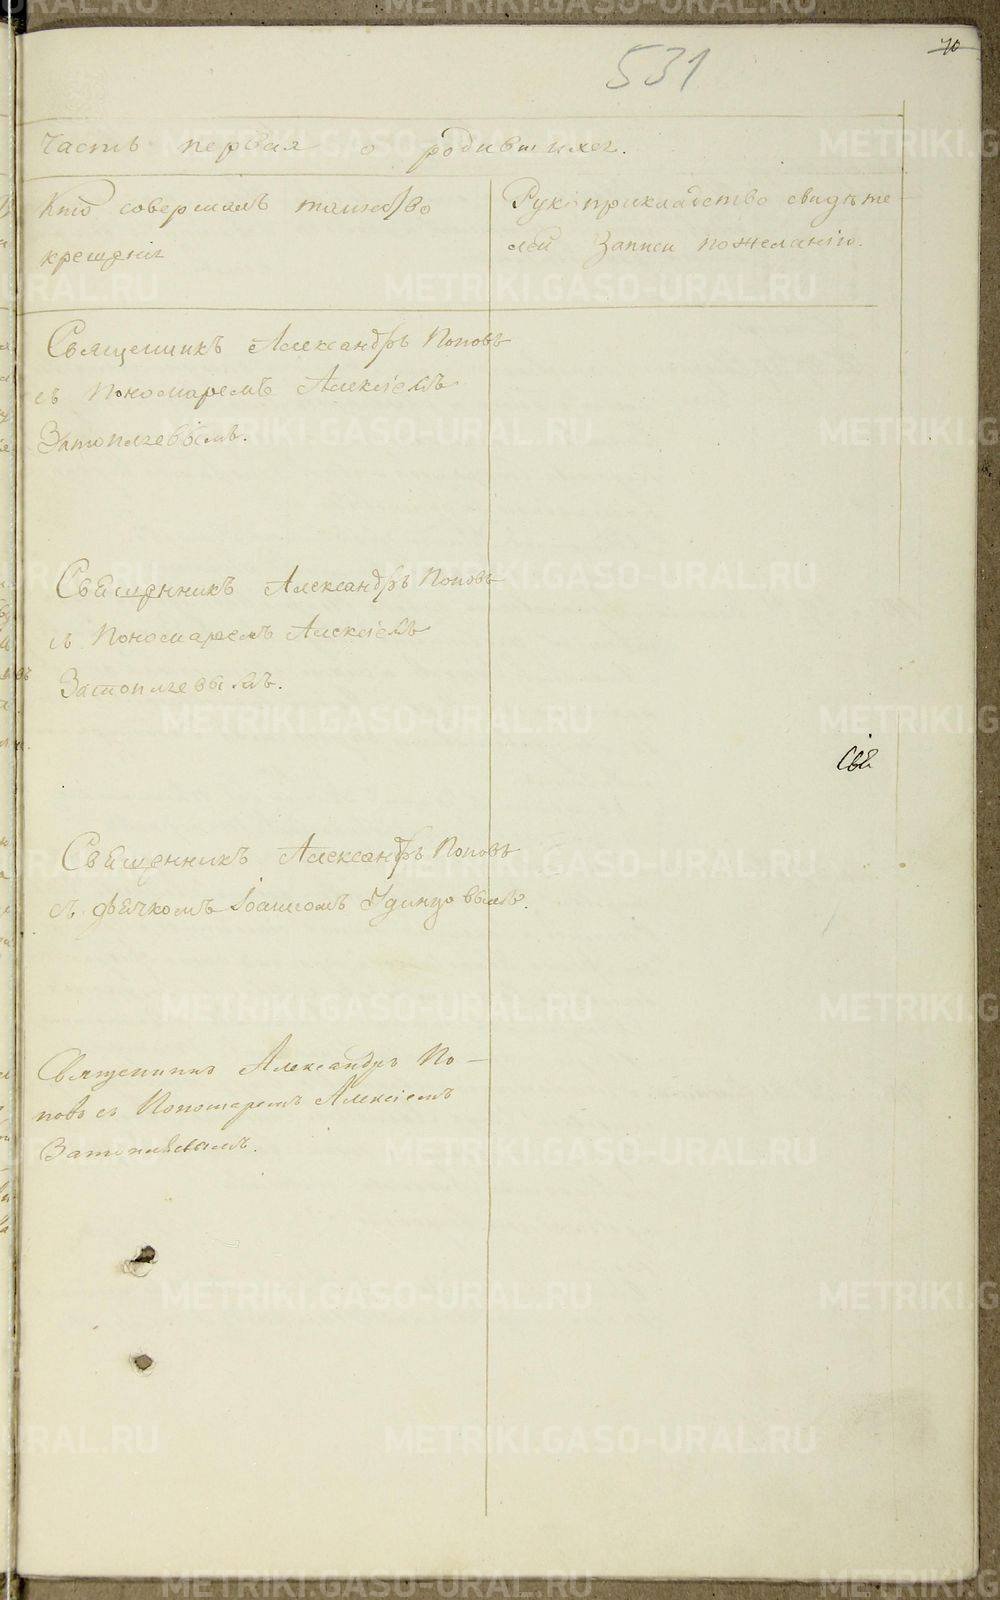 70
531
Часть первая о родившихся.
Кто совершалъ таинство
крещенія
Рукоприкладство свидѣте-
лей записи по желанію.
Священникъ Александръ Поповъ
съ Пономаремъ Алексіемъ
Затопляевымъ.
Священникъ Александръ Поповъ
съ Пономаремъ Алексіемъ
Затопляевымъ.
Свя
Священникъ Александръ Поповъ
съ дьячкомъ Іоанномъ Удинцовымъ.
Священникъ Александръ По-
повъ съ Пономаремъ Алексіемъ
Затопляевымъ.
METRIKI.GASO-URAL.RU